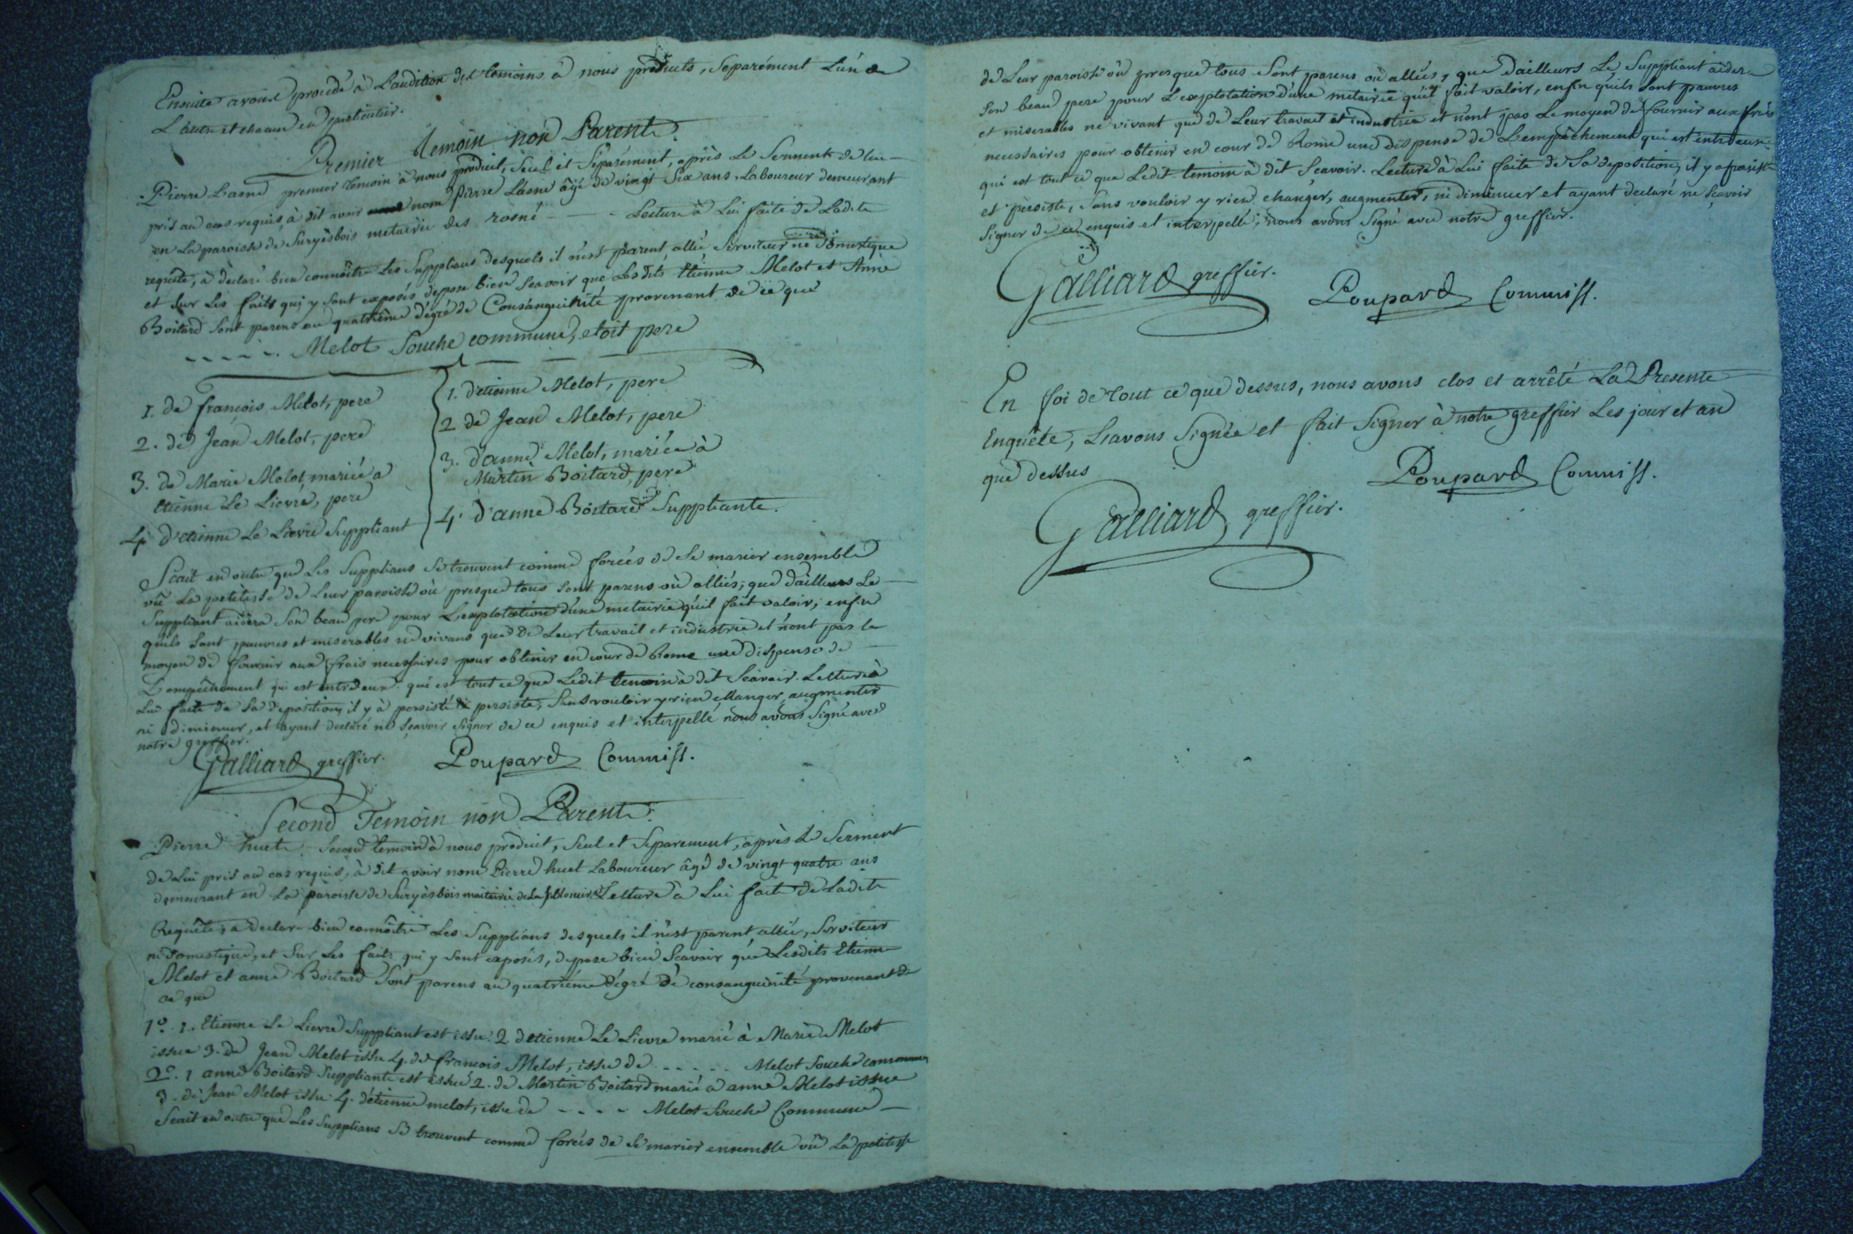 Ensuite avons procedé à Laudition des temoins à nous produits, Separément Lún de
L'autre et chacun en particulier.
Premier Temoin non Parent.
Pierre Lasne premier temoin à nous produit, Seul et Séparément, après Le Serment de lui
pris au cas requis, à dit avoir nom Pierre Lasne âgé de vingt Six ans Laboureur demeurant
en La paroisse de Suryèsbois metairie des rosné - - - Lecture à Lui faite de Ladite
requête, à déclaré bien connoître Les Supplians desquels il n'est parent, allié Serviteur ne Domestique
et Sur Les faits qui y Sont exposés depose bien Sçavoir que Lesdits Etienne Melot et Anne
Boitard Sont parens au quatrième dégré de Consanguinité provenant de ce que
- - - - - Melot Souche commune, etoit pere
1. de françois Melot, pere
2. de Jean Melot, pere
3. de Marie Melot, mariée a
Etienne Le Lievre, pere
4. d'etienne Le Lievre Suppliant
1. d'etienne Melot, pere
2 de Jean Melot, pere
3. d'anne Melot, mariée à
Martin Boitard, pere
4. d'anne Boitard Suppliante.
Scait en outre que Les Supplians Se trouvent comme forcés de Se marier ensemble
vû La petitesse de Leur paroisse où presque tous Sont parens où alliés; que d'ailleurs Le
Suppliant aidera Son beau pere pour L'explotation d'une metairie qu'il fait valoir; enfin
qu'ils Sont pauvres et miserables ne vivans que de Leur travail et industrie et n'ont pas le
moyen de fournir aux frais necessaires pour obtenir en cour de Rome une dispense de
L'empêchement qui est entr'eux. qui est tout ce que Ledit temoin à dit Scavoir. Lecture à
Lui faite de Sa deposition, il y à persisté persiste, Sans vouloir y rien changer, augmenter
ni diminuer, et ayant declaré ne Sçavoir Signer de ce enquis et interpellé nous avons Signé avec
notre greffier.
Galliard greffier. Poupard Commiss.
Second Temoin non Parent.
Pierre huet Second temoin à nous produit, Seul et Séparement, après Le Serment
de Lui pris au cas requis, à dit avoir nom Pierre huet Laboureur âgé de vingt quatre ans
demeurant en La paroisse de Suryèsbois metairie de La Lecture a Lui faite de Ladite
Requête, a declaré bien connoître Les Supplians desquels il n'est parent allié, Serviteur
ne Domestique, et Sur Les faits qui y Sont exposés, depose bien Scavoir que Lesdits Etienne
Melot et anne Boitard Sont parens au quatrième dégré de consanguinité provenant de
ce que
1°. 1. Etienne Le Lievre Suppliant est issu 2 d'etienne Le Lievre marié à Marie Melot
issue 3. de Jean Melot issu 4. de françois Melot, issu de - - - - - Melot Souche commune
2°. 1 anne Boitard Suppliante est issue 2. de Martin Boitard marié a anne Melot issue
3. de Jean Melot issu 4. d'etienne melot, issu de - - - - Melot Souche Commune
Scait en outre que Les Supplians Se trouvent comme forcés de Se marier ensemble vû La petitesse
de Leur paroisse où presque tous Sont parens où alliés, que d'ailleurs Le Suppliant aidera
Son beau pere pour L'explotation d'une metairie qu'il fait valoir, enfin qu'ils Sont pauvres
et miserables ne vivant que de Leur travail et industrie et n'ont pas Le moyen de fournir aux frais
necessaires pour obtenir en cour de Rome une dispense de L'empêchement qui est entr'eux.
qui est tout ce que Ledit temoin à dit Scavoir. Lecture à Lui faite de Sa deposition, il y a persisté
et persiste, Sans vouloir y rien changer, augmenter, ni diminuer et ayant declaré ne Scavoir
Signer de ce enquis et interpellé; nous avons Signé avec notre greffier.
Galliard greffier. Poupard Commiss.
En foi de tout ce que dessus, nous avons clos et arrêté La Presente
Enquête, L'avons Signée et fait Signer à notre greffier Les jour et an
que dessus
Poupard Commiss.
Galliard greffier.